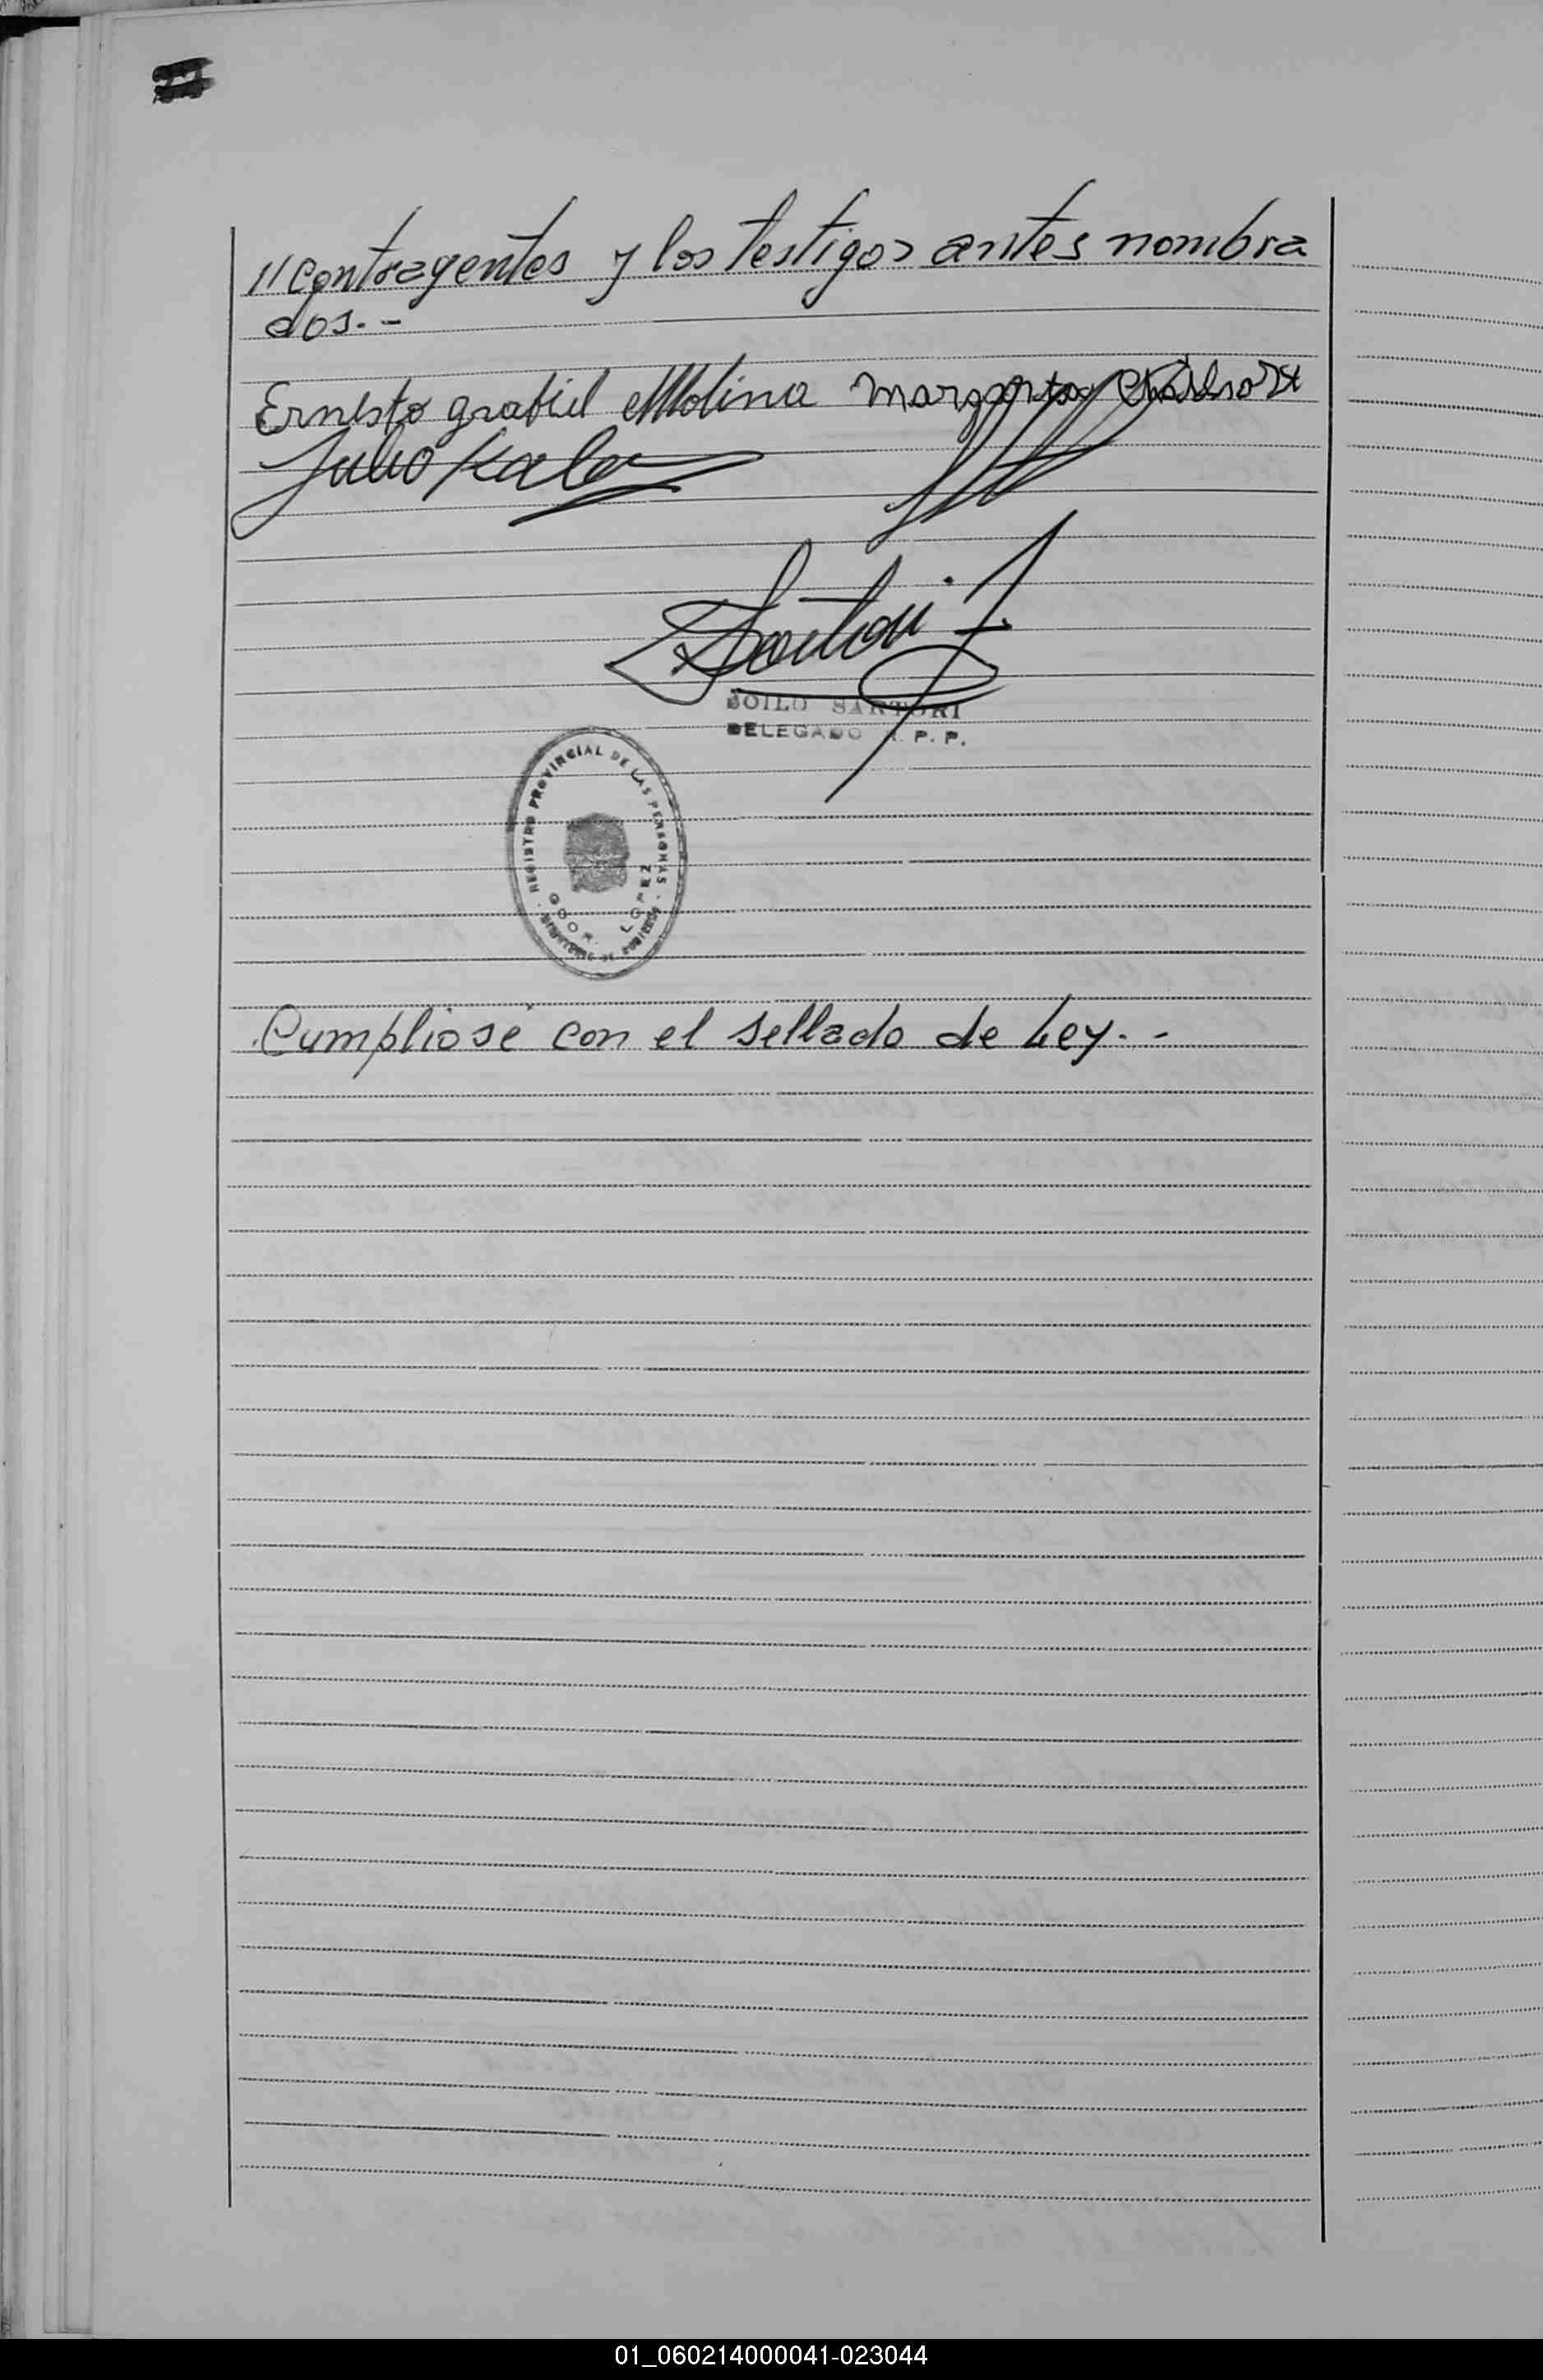 //contrayentes y los testigos antes nombra
dos.-
Ernesto grabiel Molina Margarita
Julio
Sartori
ZOILO SARTORI
DELEGADO R. P. P.
REGISTRO PROVINCIAL DE LAS PERSONAS
GDOR. LOPEZ
MINISTERIO DE GOBIERNO
Cumpliose con el sellado de Ley.-
01_060214000041-023044